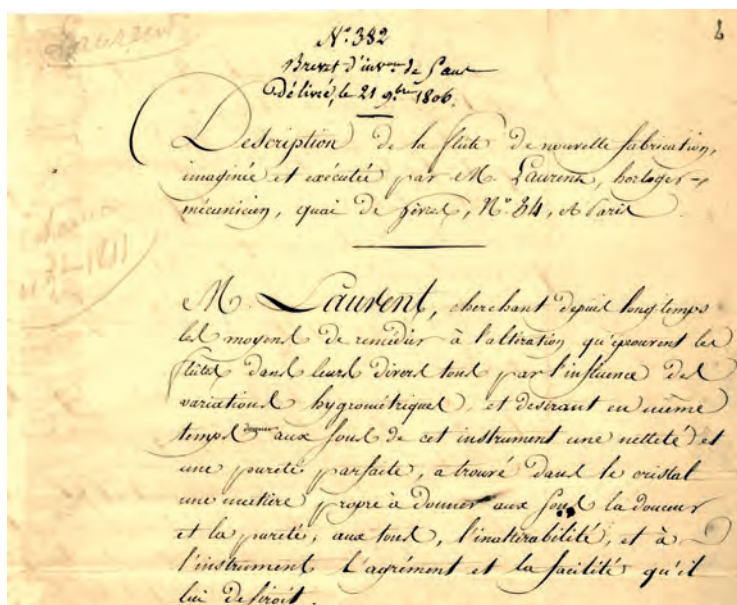 Laurent
8
N.º 382
Brevet d'inv.on de 5 ans
Délivré, le 21 9.bre 1806.
Description de la flûte de nouvelle fabrication,
imaginée et exécutée par M. Laurent, horloger-
mécanicien, quai de Gèvres, N.º 34, à Paris
M. Laurent, cherchant depuis long-temps
les moyens de remédier à l'altération qu'éprouvent les
flûtes dans leurs divers tons par l'influence des
variations hygrométriques, et desirant en même
temps donner aux sons de cet instrument une netteté et
une pureté parfaite, a trouvé dans le cristal
une matière propre à donner aux sons la douceur
et la pureté, aux tons, l'inaltérabilité, et à
l'instrument l'agrément et la facilité qu'il
lui desiroit.